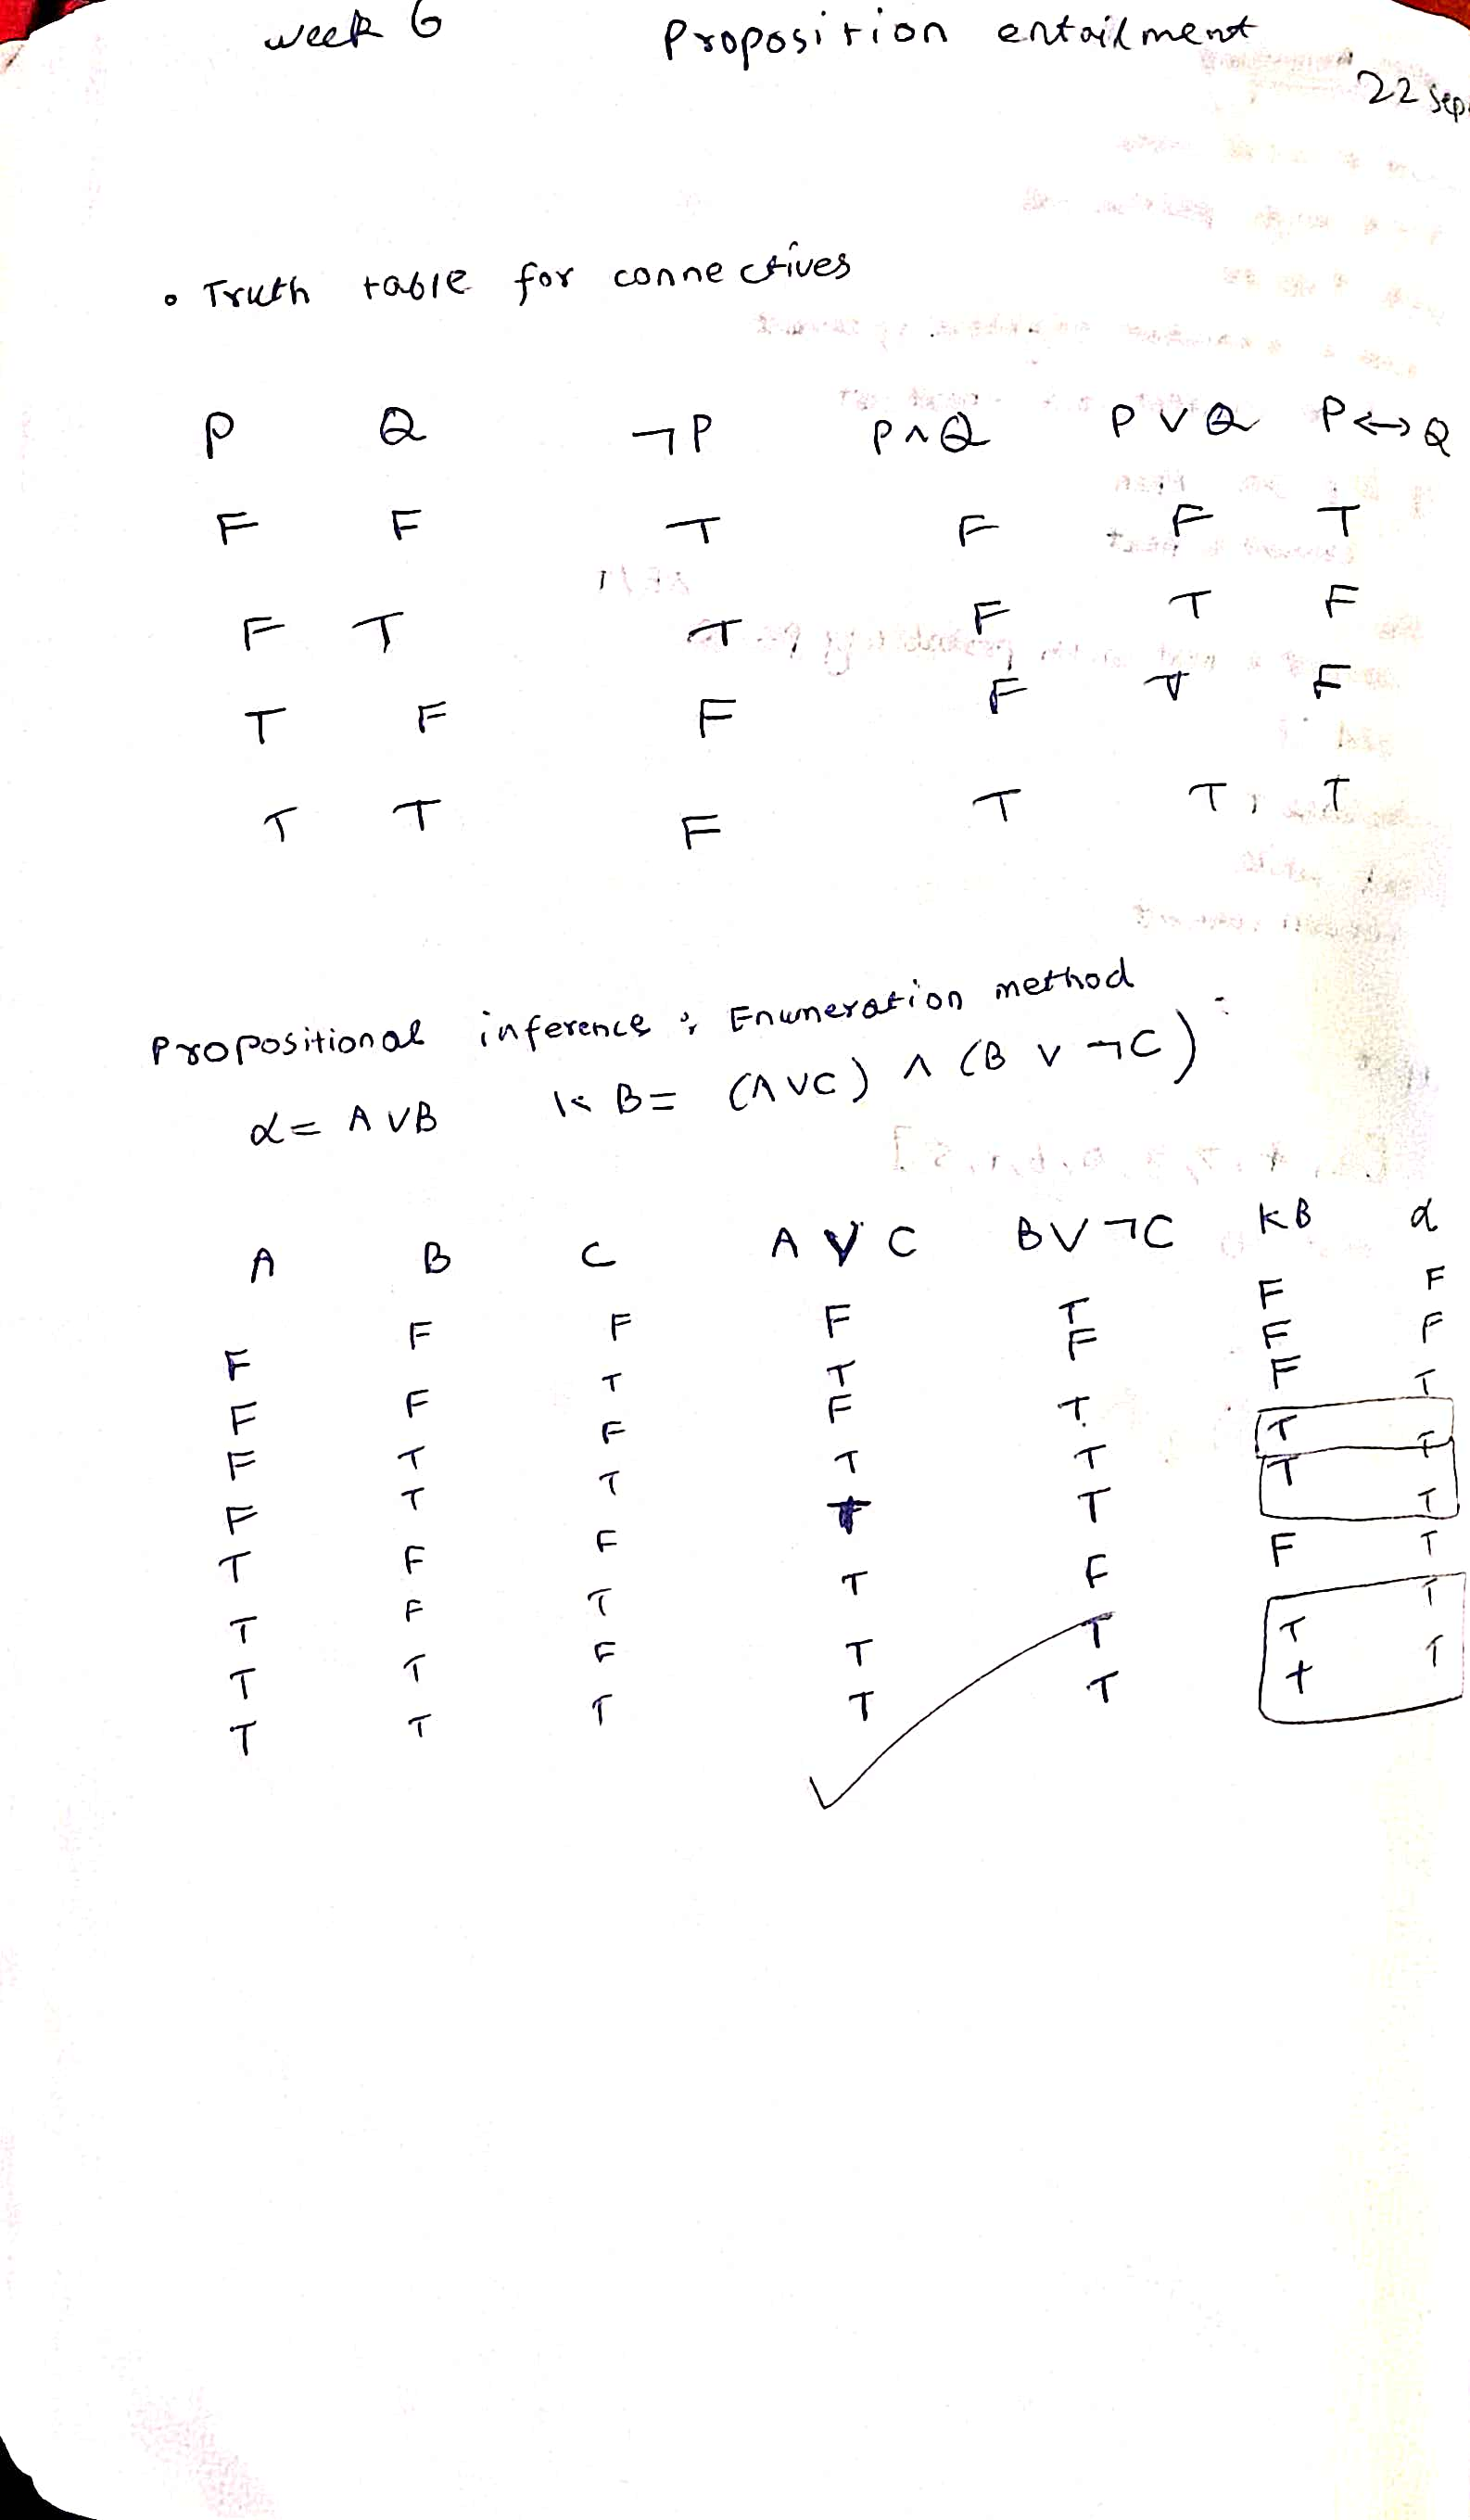 week 6 Proposition entailment
22 Sep
• Truth table for connectives
P Q ¬P P∧Q P∨Q P↔Q
F F T F F T
F T T F T F
T F F F T F
T T F T T T
Propositional inference : Enumeration method
α = A∨B KB = (A∨C) ∧ (B ∨ ¬C)
A B C A∨C B∨¬C KB α
F F F F T F F
F F T T F F F
F T F F T F T
F T T T T T T
T F F T T T T
T F T T F F T
T T F T T T T
T T T T T T T